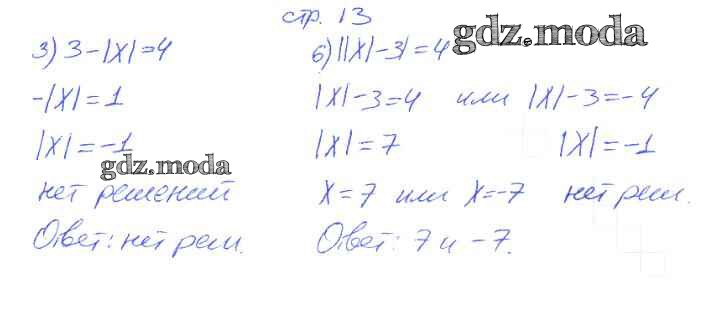 стр. 13
gdz.moda
3) 3-|x|=4
-|x|=1
|x|=-1
gdz.moda
нет решений
Ответ: нет реш.
6) ||x|-3|=4
|x|-3=4 или |x|-3=-4
|x|=7 |x|=-1
x=7 или x=-7 нет реш.
Ответ: 7 и -7.